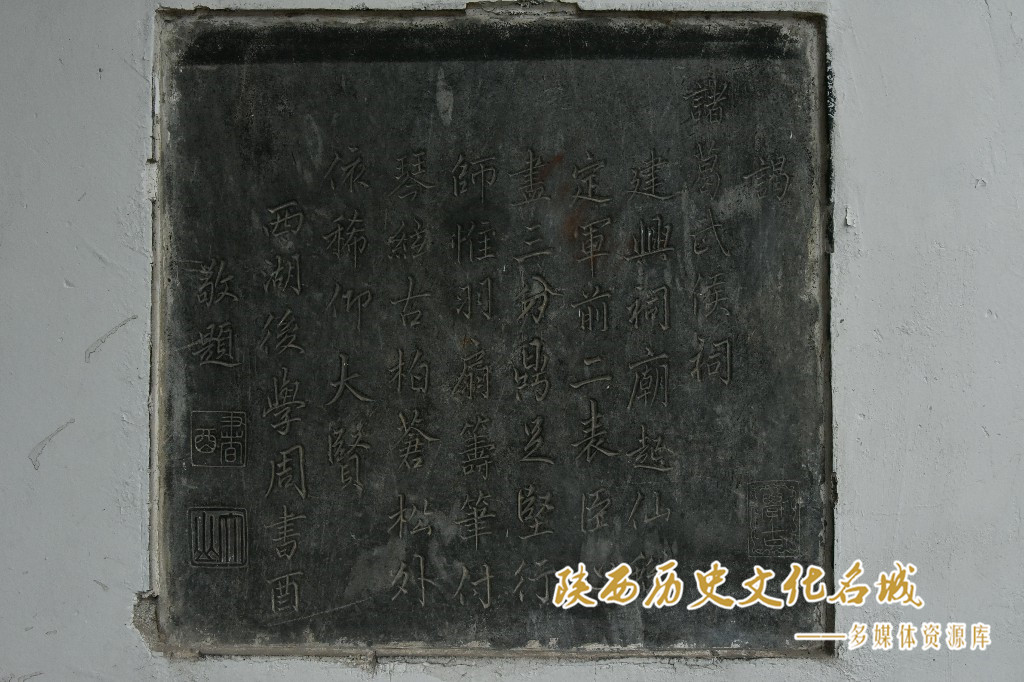 謁
諸葛武侯祠
建興祠廟起仙
定軍前二表臣心
盡三分鼎足堅行
師惟羽扇籌筆付
琴絃古柏蒼松外
依稀仰大賢
西湖後學周書酉
敬題
書酉
陕西历史文化名城
——多媒体资源库